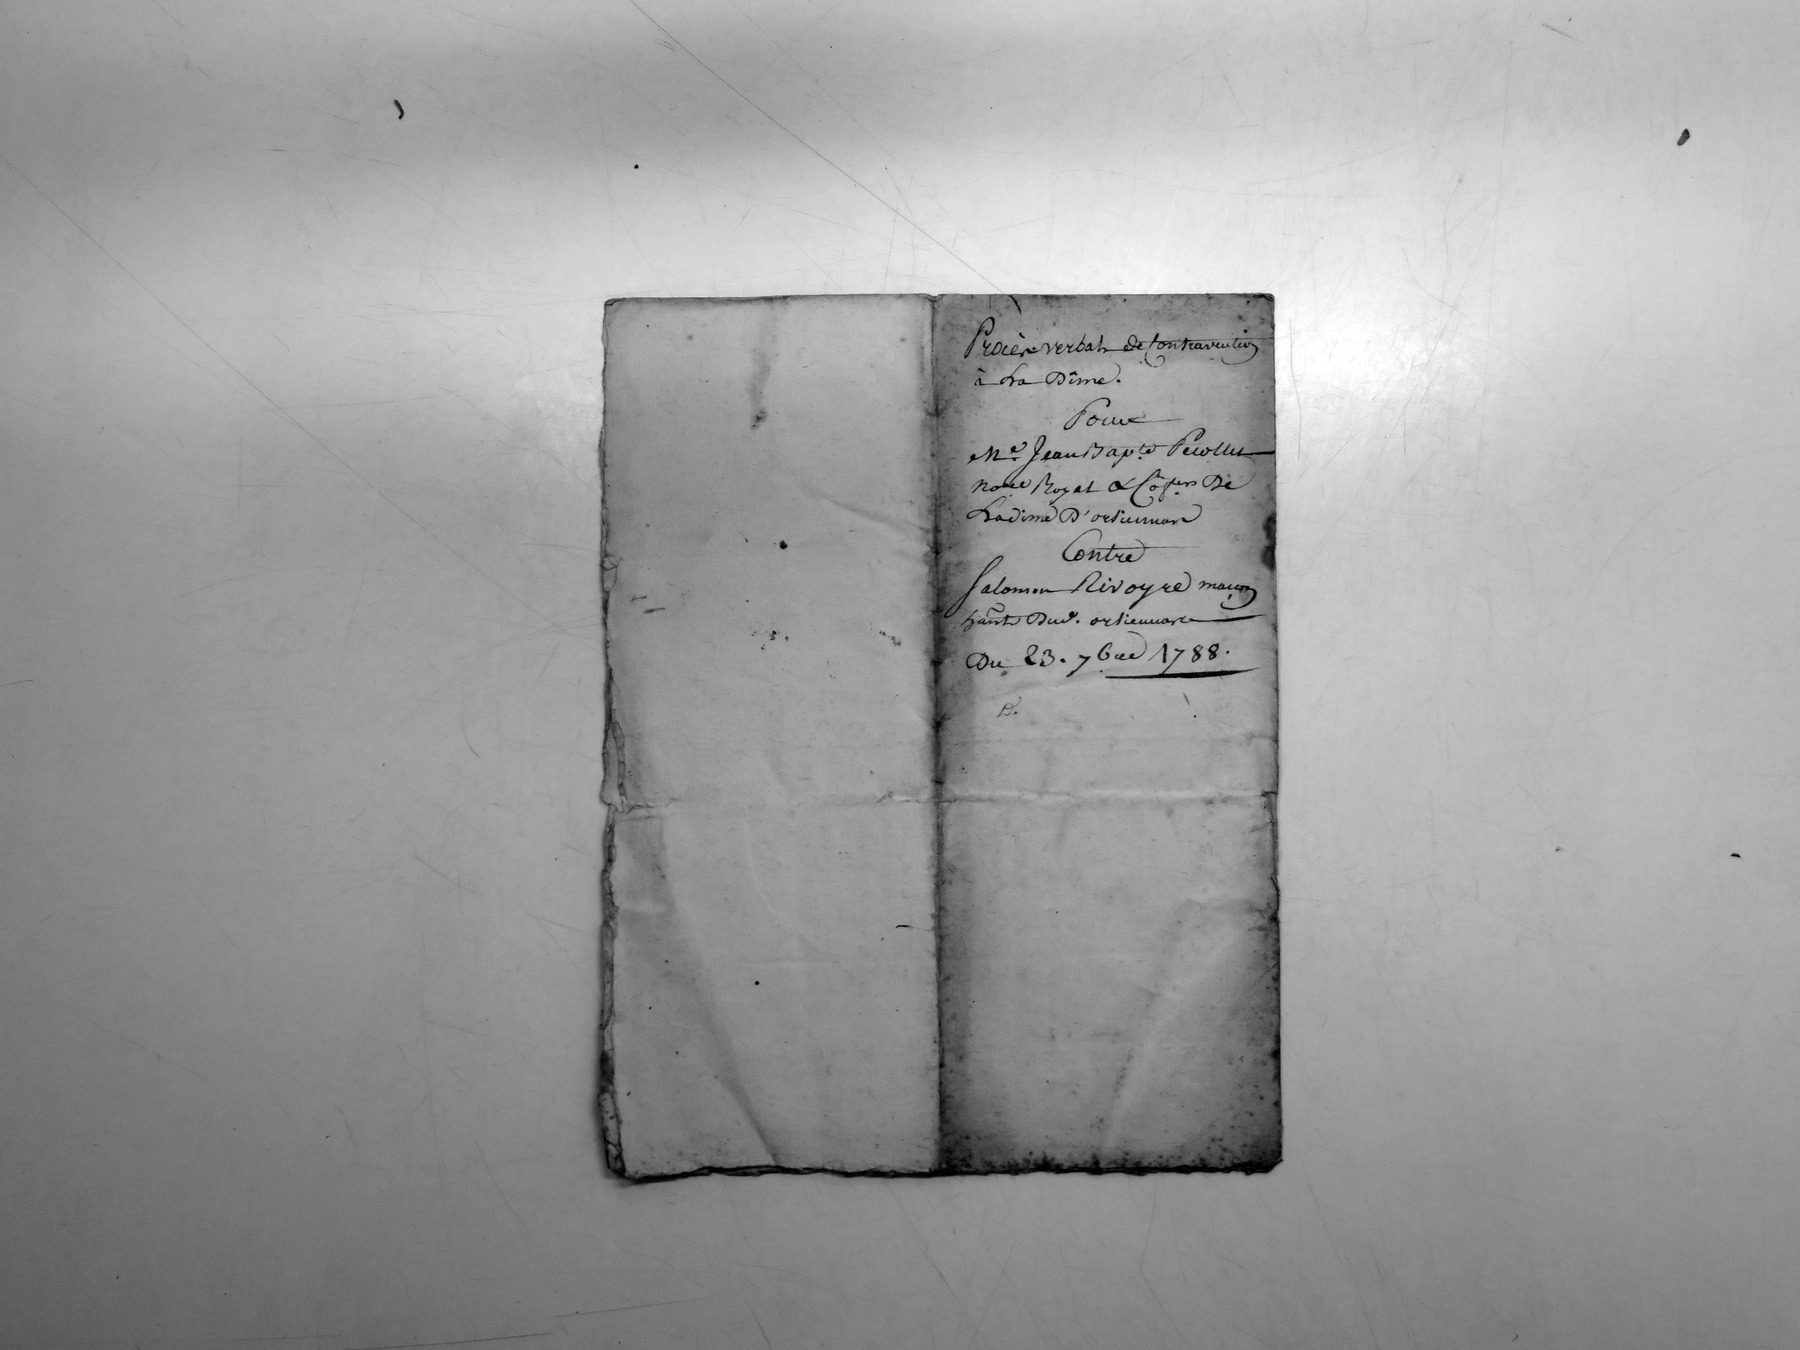 Procès verbal de Contravention
à La Dime.
Pour
Me. Jean Bapte Pecollet
Nore Royal & Cosers De
La dime D'orliennas
Contre
Salomon Rivoyre maçon
hant Dud. orliennas
Du 23. 7bre 1788.
D.